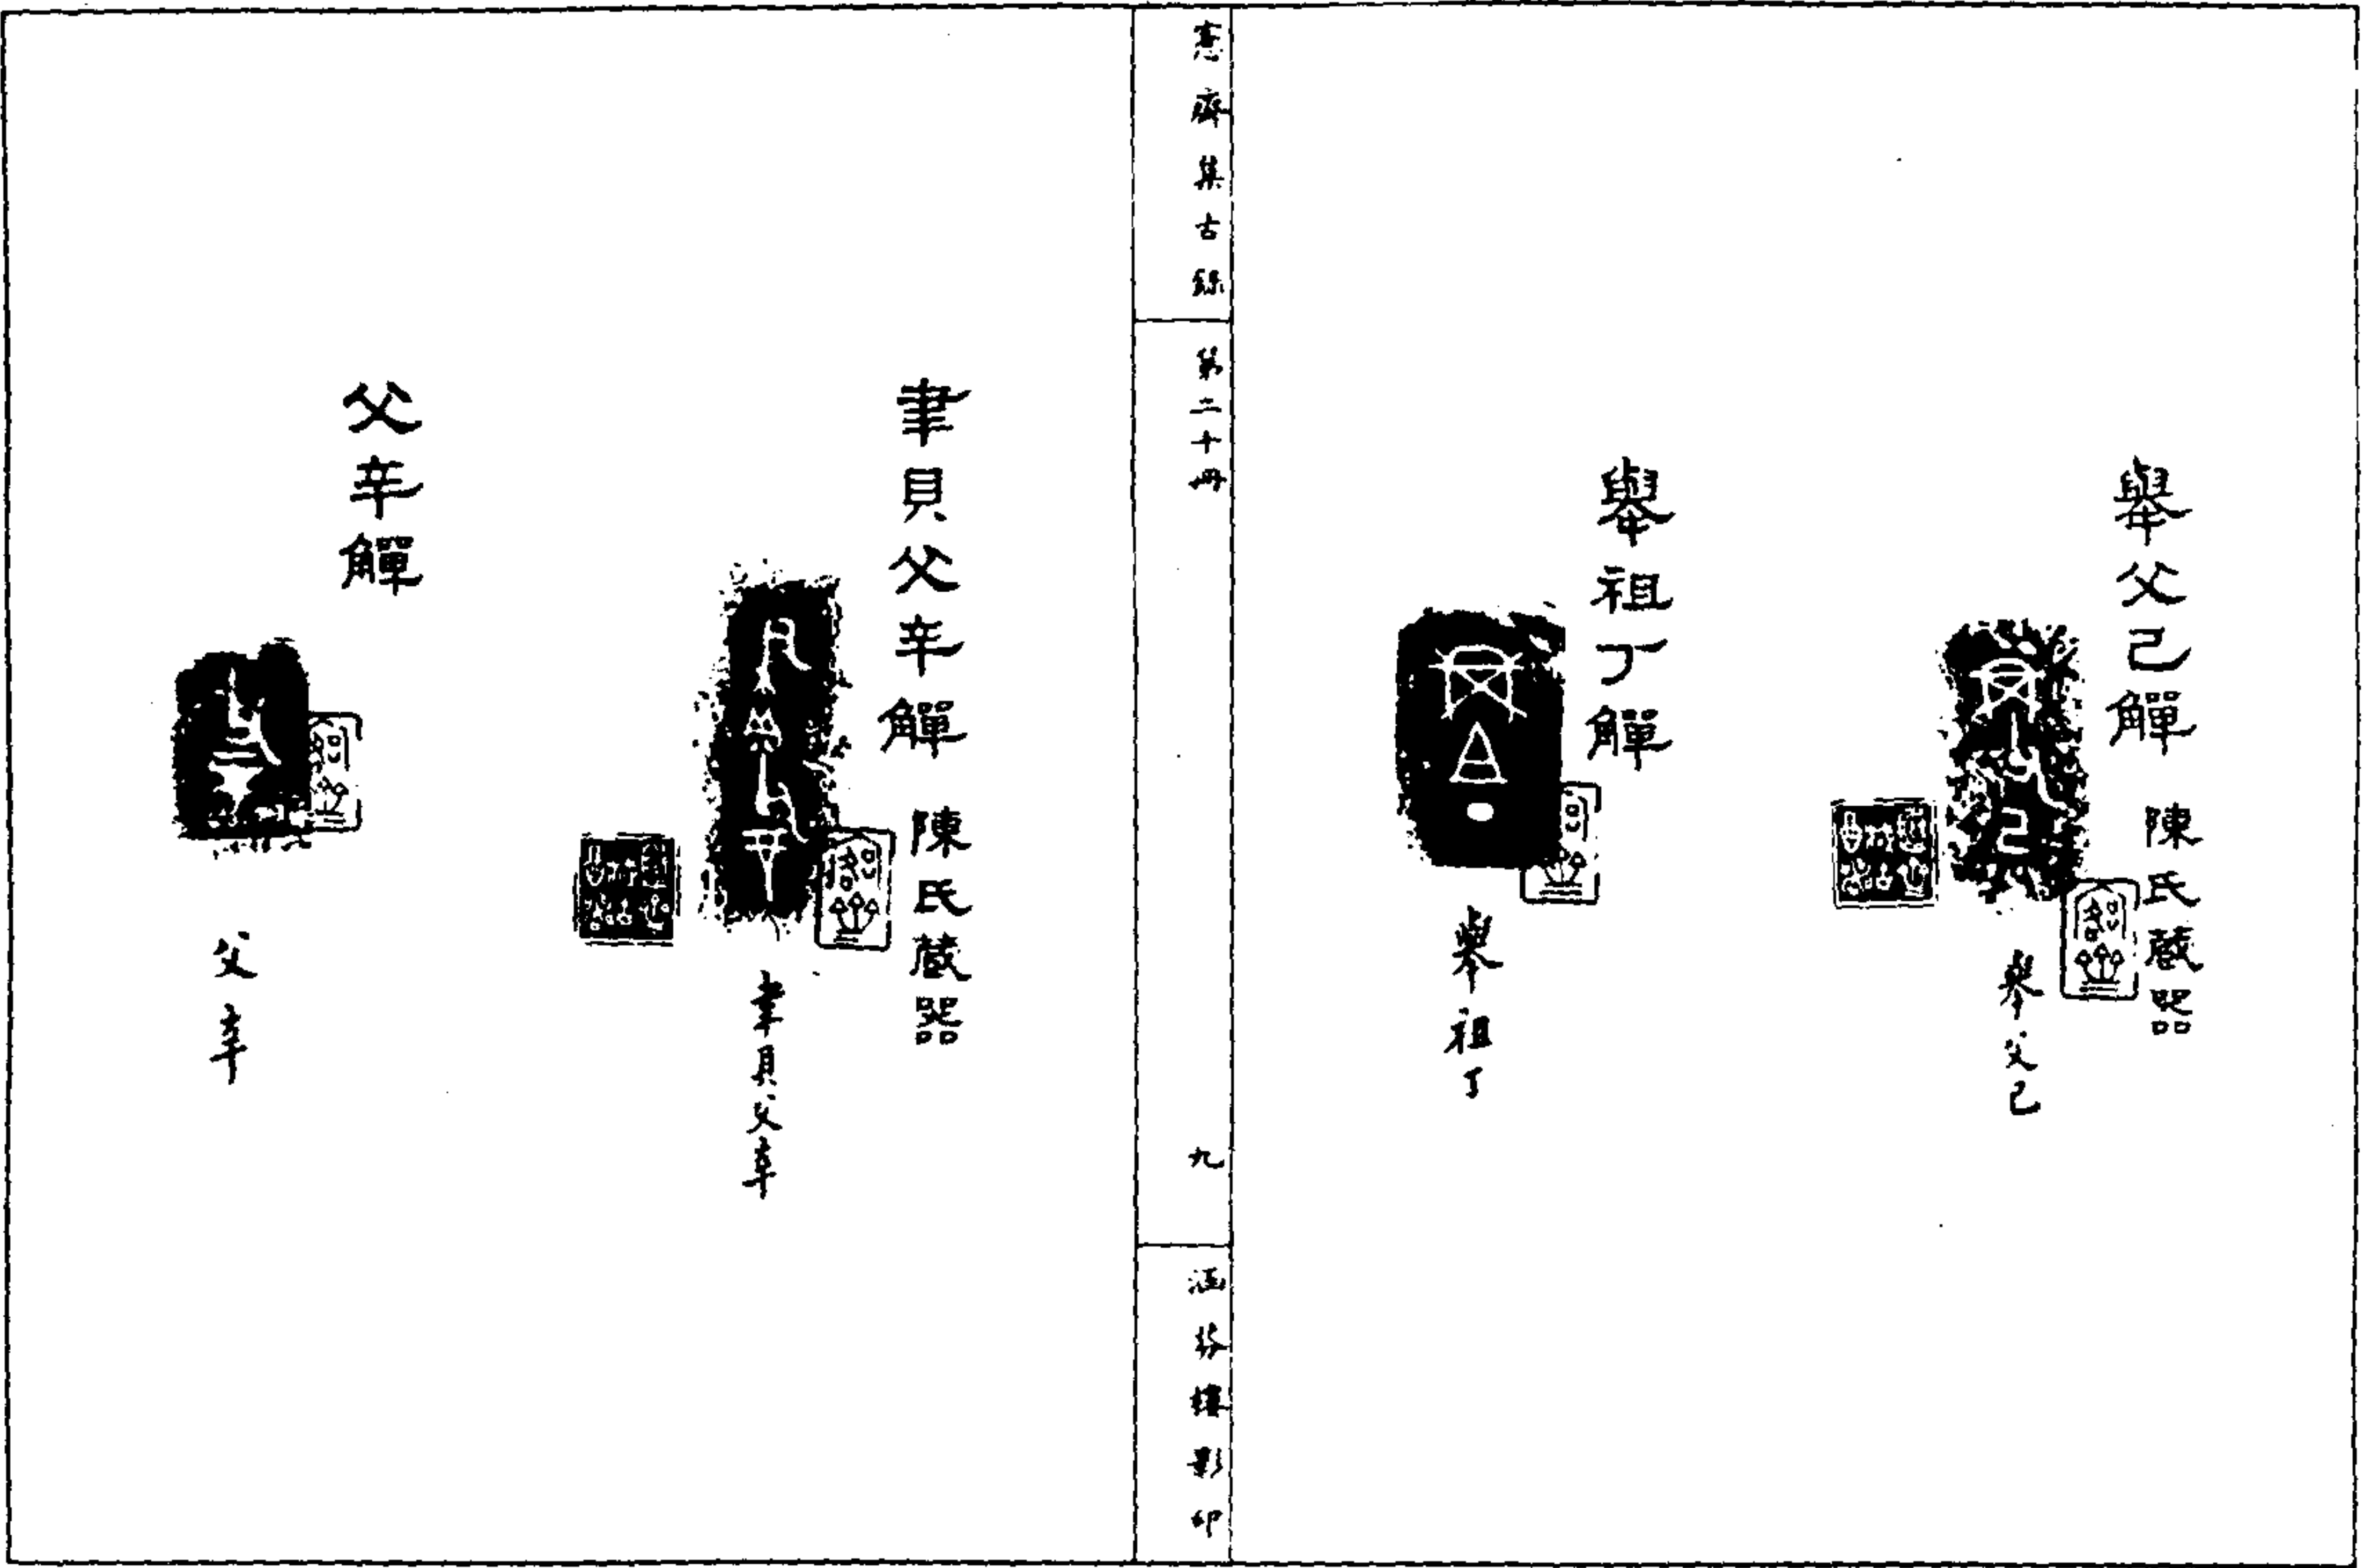 舉父己觶 陳氏藏器
舉父己
舉祖丁觶
舉祖丁
愙齋集古錄 第二十冊 九 涵芬樓影印
聿貝父辛觶 陳氏藏器
聿貝父辛
父辛觶
父辛